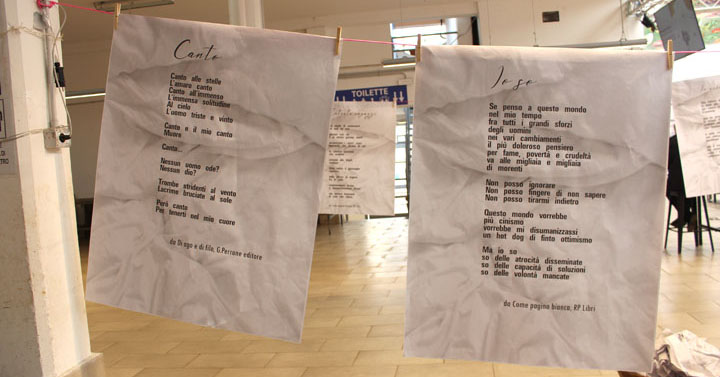 Canto
Canto alle stelle
L'amaro canto
Canto all'immenso
L'immensa solitudine
Al cielo
L'uomo triste e vinto
Canto e il mio canto
Muore
Canto...
Nessun uomo ode?
Nessun die?
Trombe stridenti al vento
Lacrime bruciate al sole
Però canto
Per tenerti nel mio cuore
da Di ago e di filo, G.Perrone editore
TOILETTE
Io so
Se penso a questo mondo
nel mio tempo
fra tutti i grandi sforzi
degli uomini
nei vari cambiamenti
il più doloroso pensiero
per fame, povertà e crudeltà
va alle migliaia e migliaia
di morenti
Non posso ignorare
Non posso fingere di non sapere
Non posso tirarmi indietro
Questo mondo vorrebbe
più cinismo
vorrebbe mi disumanizzassi
un hot dog di finto ottimismo
Ma io so
so delle atrocità disseminate
so delle capacità di soluzioni
so delle volontà mancate
da Come pagina bianca, RP Libri